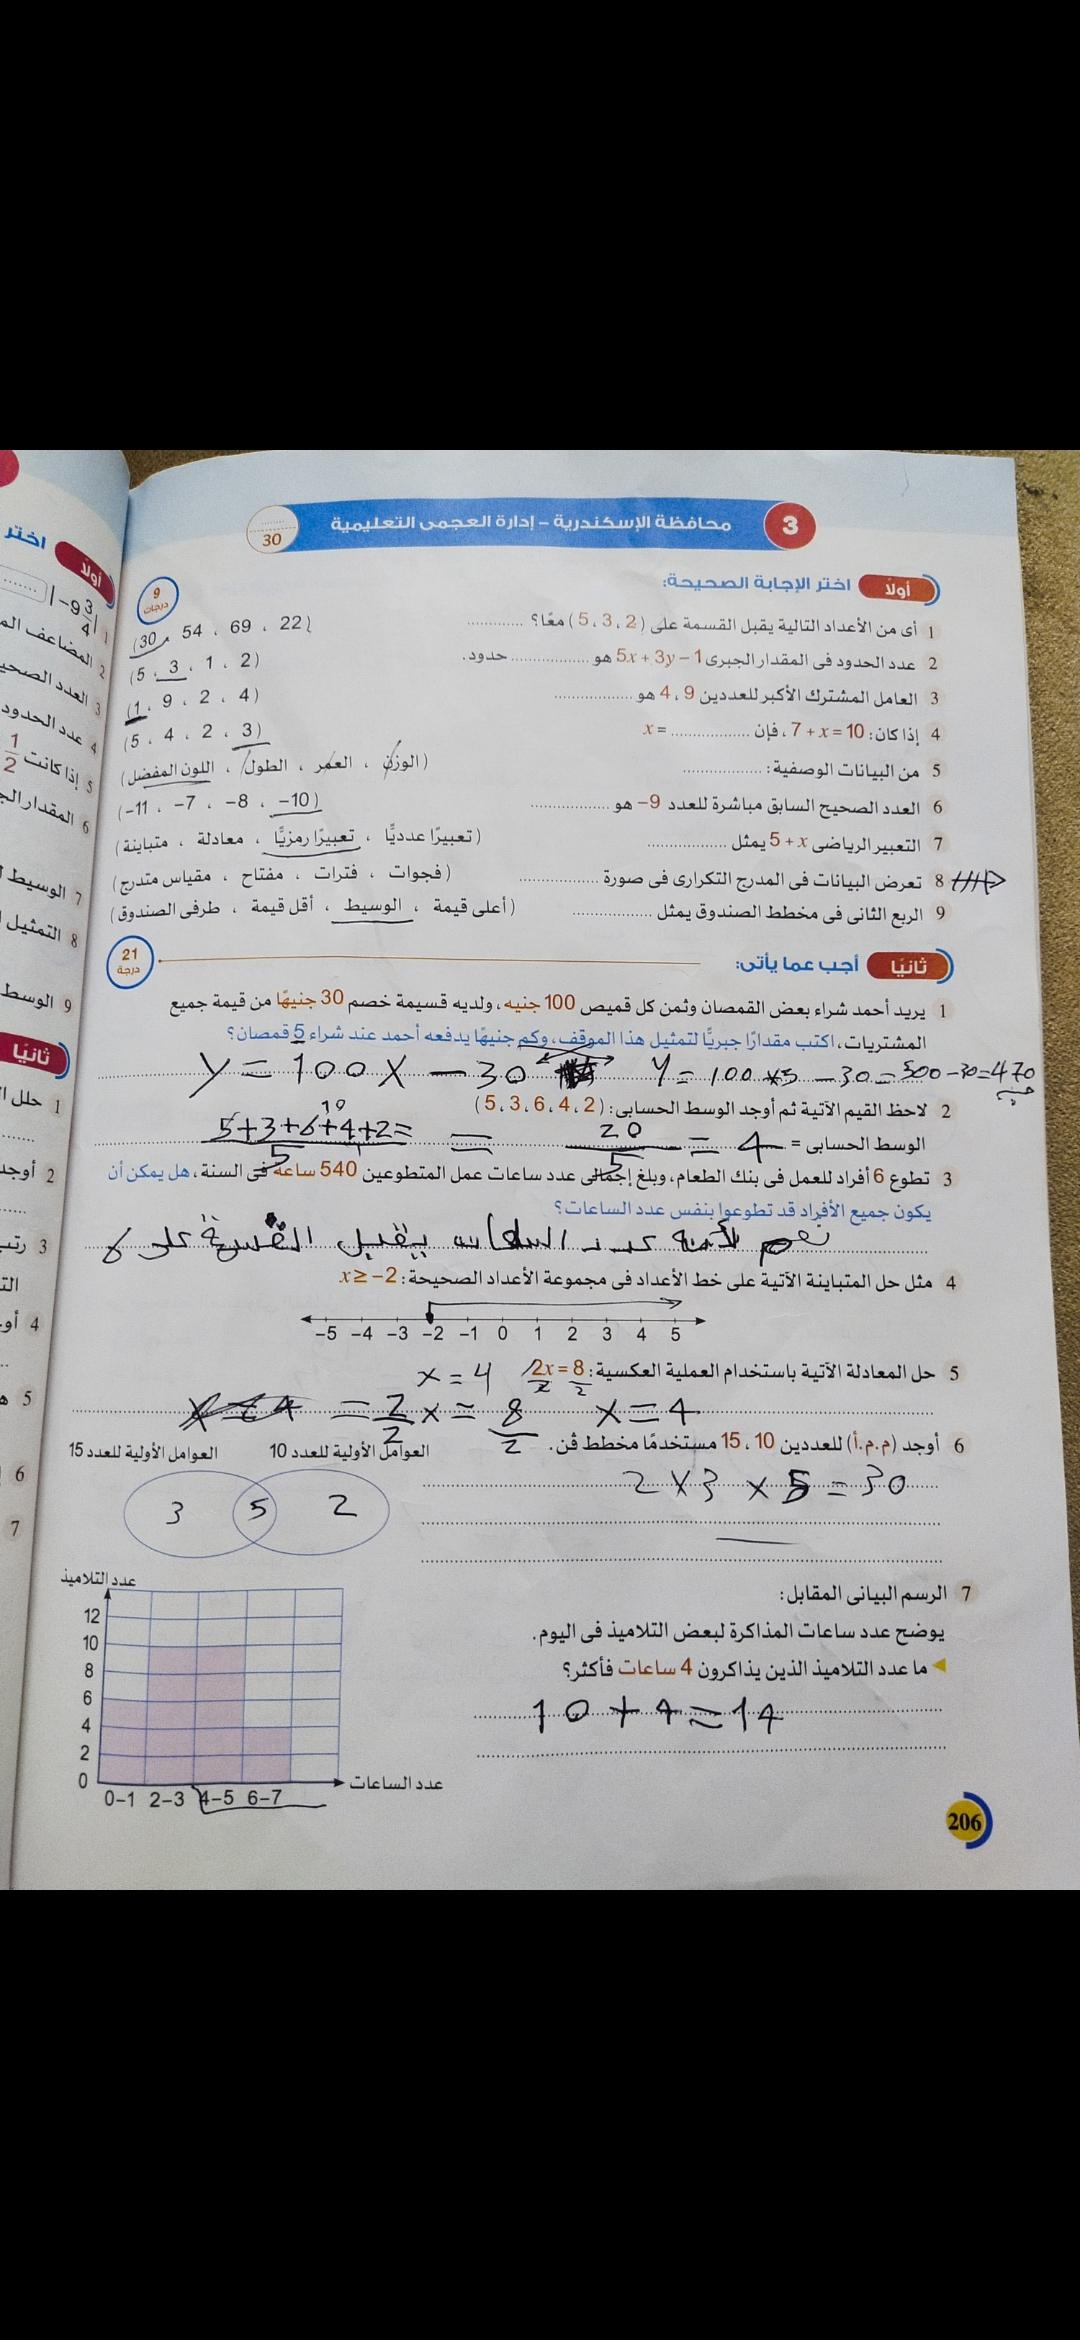 3 محافظة الإسكندرية – إدارة العجمى التعليمية
30
أولًا اختر الإجابة الصحيحة:
9 درجات
1 أى من الأعداد التالية يقبل القسمة على (5، 3، 2) معًا؟ ............ (30 ، 54 ، 69 ، 22)
2 عدد الحدود فى المقدار الجبرى 5x + 3y – 1 هو ............ حدود. (5 ، 3 ، 1 ، 2)
3 العامل المشترك الأكبر للعددين 9، 4 هو ............ (1 ، 9 ، 2 ، 4)
4 إذا كان: 7 + x = 10، فإن ............ = x (5 ، 4 ، 2 ، 3)
5 من البيانات الوصفية: ............ (الوزن ، العمر ، الطول ، اللون المفضل)
6 العدد الصحيح السابق مباشرة للعدد 9– هو ............ (–11 ، –7 ، –8 ، –10)
7 التعبير الرياضى 5 + x يمثل ............ (تعبيرًا عدديًّا ، تعبيرًا رمزيًّا ، معادلة ، متباينة)
8 تعرض البيانات فى المدرج التكرارى فى صورة ............ (فجوات ، فترات ، مفتاح ، مقياس متدرج)
9 الربع الثانى فى مخطط الصندوق يمثل ............ (أعلى قيمة ، أقل قيمة ، الوسيط ، طرفى الصندوق)
ثانيًا أجب عما يأتى:
21 درجة
1 يريد أحمد شراء بعض القمصان وثمن كل قميص 100 جنيه، ولديه قسيمة خصم 30 جنيهًا من قيمة جميع
المشتريات، اكتب مقدارًا جبريًّا لتمثيل هذا الموقف، وكم جنيهًا يدفعه أحمد عند شراء 5 قمصان؟
y = 100x – 30 y = 100 × 5 – 30 = 500 – 30 = 470
2 لاحظ القيم الآتية ثم أوجد الوسط الحسابى: (5، 3، 6، 4، 2)
10
الوسط الحسابى = 5+3+6+4+2= / 5 = 20 / 5 = 4
3 تطوع 6 أفراد للعمل فى بنك الطعام، وبلغ إجمالى عدد ساعات عمل المتطوعين 540 ساعة فى السنة، هل يمكن أن
يكون جميع الأفراد قد تطوعوا بنفس عدد الساعات؟
نعم لأنة عدد الساعات يقبل القسمة على 6
4 مثل حل المتباينة الآتية على خط الأعداد فى مجموعة الأعداد الصحيحة: x ≥ –2
–5 –4 –3 –2 –1 0 1 2 3 4 5
5 حل المعادلة الآتية باستخدام العملية العكسية: 2x = 8 x = 4
2 2
= 2/2 x = 8/2 x = 4
6 أوجد (م.م.أ) للعددين 10، 15 مستخدمًا مخطط ڤن.
العوامل الأولية للعدد 10 العوامل الأولية للعدد 15
2 × 3 × 5 = 30
3 5 2
7 الرسم البيانى المقابل:
يوضح عدد ساعات المذاكرة لبعض التلاميذ فى اليوم.
ما عدد التلاميذ الذين يذاكرون 4 ساعات فأكثر؟
10 + 4 = 14
عدد التلاميذ
12
10
8
6
4
2
0
0–1 2–3 4–5 6–7
عدد الساعات
206
اختر
أولًا
|–9 3/4|
1
2 المضاعف
3 العدد
4 عدد الحدود
5 إذا كانت 1/2
6 المقدار
7 الوسيط
8 التمثيل
9 الوسط
ثانيًا
1 حلل
2 أوجد
3
4
5
6
7